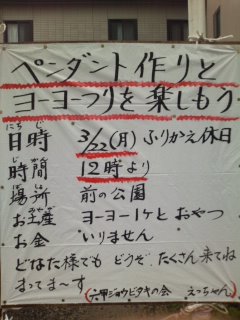 ペンダント作りと
ヨーヨーつりを楽しもう
にちじ
日時 3/22(月) ふりかえ休日
じかん
時間 12時より
ばしょ
場所 前の公園
みやげ
お土産 ヨーヨー1ケと おやつ
お金 いりません
どなた様でも どうぞ、たくさん来てね
まってま〜す
(六甲ジョウビタキの会 えっちゃん)